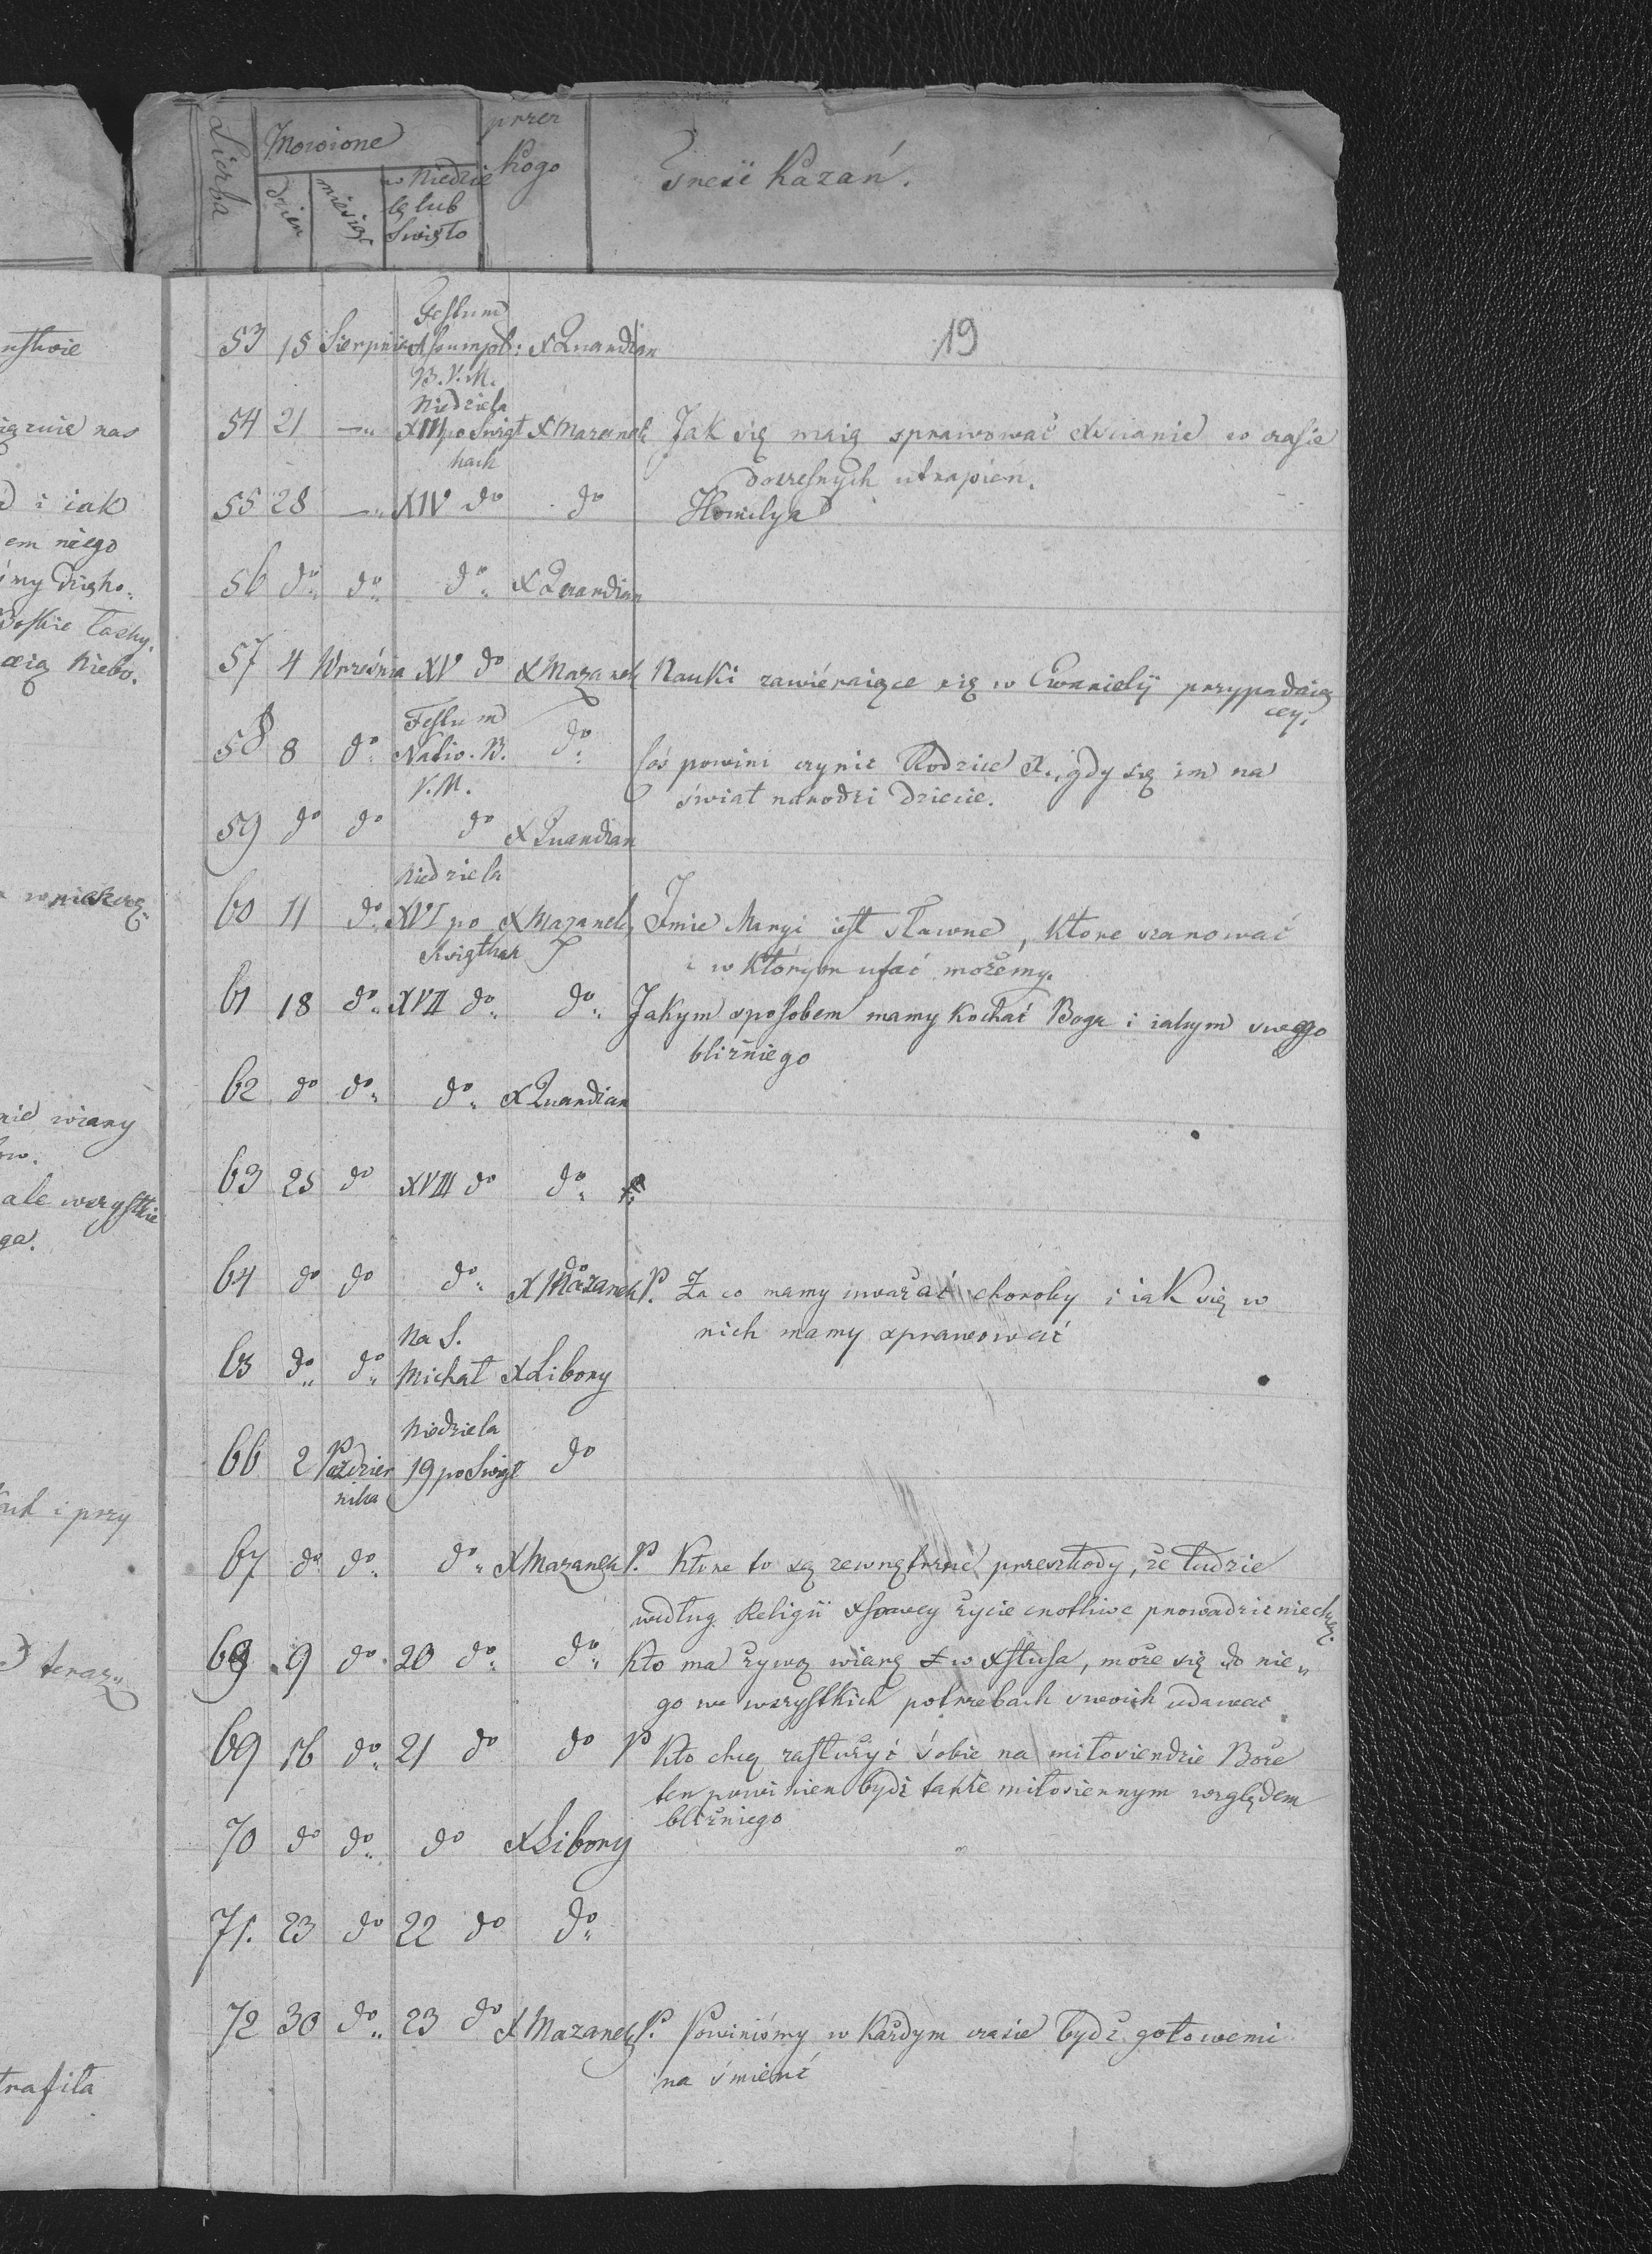 Liczba
Mowione
dzien
miesiąc
w Niedzie
lę lub
Swięto
przez
Kogo
Treść Kazań.
19
53 15 Sierpnia Festum
Assumpt: X Quardian
B. V. M.
54 21 —„ Niedziela
XIII po Swiąt X Mazanek Jak się maią sprawować Xscianie w czasie
kach doczesnych utrapień.
55 28 —„ XIV do do Homilya
56 do„ do„ do„ X Quardian
57 4 Wrzesnia XV do X Mazanek Nauki zawieraiące się w Ewanielii przypadaią
cey.
58 8 do Festum
Nativ. B. do„ Coś powini czynic Rodzice X., gdy się im na
V. M. świat narodzi dziecie.
59 do do do X Quardian
60 11 do„ Niedziela
XVI po X Mazanek Imie Maryi iest sławne, ktore szanować
Swiątkach i w którym ufać możemy.
61 18 do„ XVII do„ do„ Jakym sposobem mamy kochać Boga i iakym swego
bliźniego
62 do do„ do„ X Quardian
63 25 do XVIII do do„
64 do do do„ X Mazanek P. Za co mamy uważać choroby i iak się w
nich mamy sprawować
65 do„ do„ Na S.
Michał X Libory
66 2 Paździer
nika Niedziela
19 po Swiąt do
67 do do„ do„ X Mazanek P. Ktore to są zewnętrzne przeszkody, że ludzie
według Religii życie cnotliwe prowadzić niechcą.
68 9 do. 20 do„ do„ Kto ma żywą wiarę w Xstusa, może się do nie„
go we wszystkich potrzebach swoich udawać.
69 16 do„ 21 do do P Kto chcę zasłużyć sobie na miłosierdzie Boże
ten powinien bydź także miłosiernym względem
bliźniego
70 do do„ do X Libory
71. 23 do 22 do do„
72 30 do„ 23 do X Mazanek P. Powiniśmy w każdym czasie bydź gotowemi
na śmierć
ństwie
nas
i iak
em niego
Boskie łaski
Niebo.
nie wiary
ale wszystkie
ga.
i przy
teraz„
trafiła